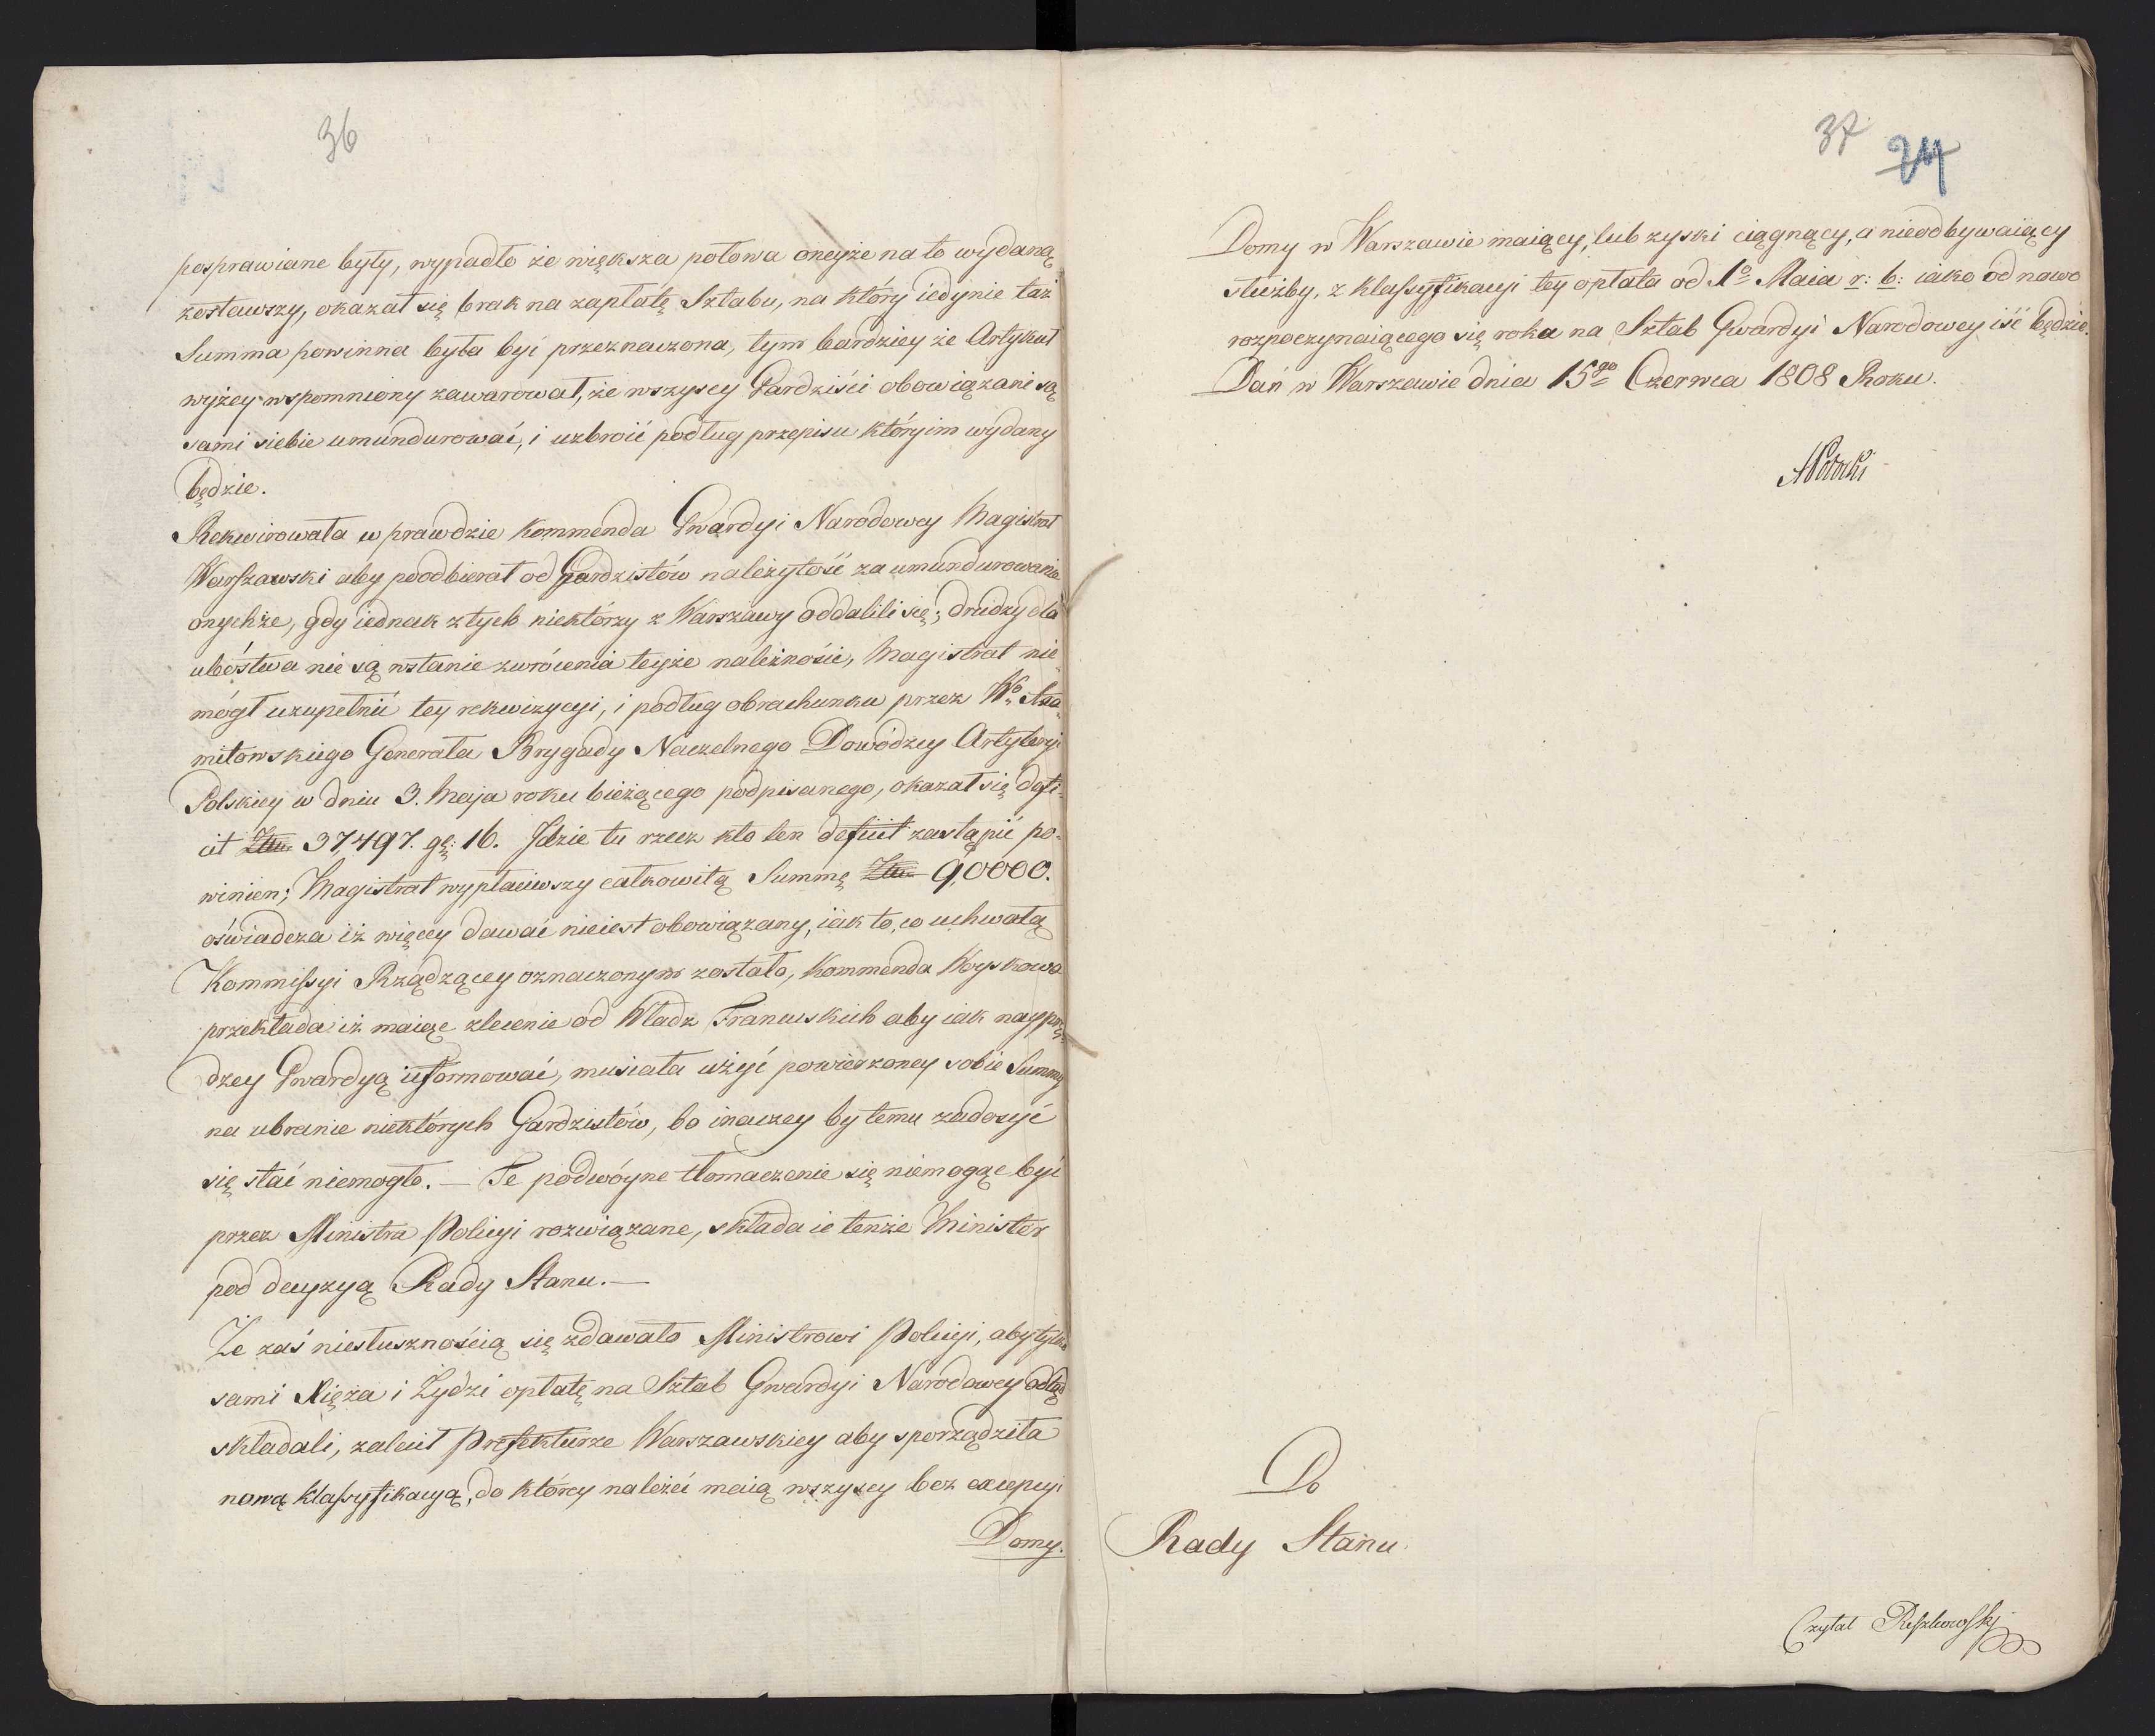 36
posprawiane były, wypadło że większa połowa oneyże na to wydaną
zostawszy, okazał się brak na zapłatę Sztabu, na który iedynie taż
Summa powinna była być przeznaczona, tym bardziey że Artykuł
wyżey wspomniony zawarował, że wszyscy Gardziści obowiązani są
sami siebie umundurować, i uzbroić podług przepisu który im wydany
będzie.
Rekwirowała w prawdzie Kommenda Gwardyi Narodowey Magistrat
Warszawski aby poodbierał od Gardzistów należytość za umundurowanie
onychże, gdy iednak z tych niektórzy z Warszawy oddalili się, drudzy dla
ubóstwa nie są wstanie zwrócenia teyże należności, Magistrat nie
mógł uzupełnić tey rekwizycyi, i podług obrachunku przez Wo
mitowskiego Generała Brygady Naczelnego Dowódzcy Artyleryi
Polskiey w dniu 3. Maja roku bieżącego podpisanego, okazał się defi-
cit Złłu 37,497. gę: 16. Jdzie tu rzecz kto ten deficit zastąpić po-
winien; Magistrat wypłaciwszy całkowitą Summę Złłu 9,0000.
oświadcza iż więcey dawać nieiest obowiązany, iak to, co uchwałą
Kommissyi Rządzącey oznaczonym zostało, Kommenda Woyskowa
przekłada iż maiąc zlecenie od Władz Francuskich aby iak nayprę-
dzey Gwardyą uformować, musiała użyć powierzoney sobie Summy
na ubranie niektórych Gardzistów, bo inaczey by temu zadosyć
się stać niemogło. — Te podwóyne tłomaczenie się niemogąc być
przez Ministra Policyi rozwiązane, składa ie tenże Minister
pod decyzyą Rady Stanu. —
Że zaś niesłusznością się zdawało Ministrowi Policyi, aby tylko
sami Xięża i Żydzi opłatę na Sztab Gwardyi Narodowey odtąd
składali, zalecił Prefekturze Warszawskiey aby sporządziła
nową klassyfikacyą, do którey należeć maią wszyscy bez excepcyi
Domy.
37
24
Domy w Warszawie maiący, lub zyski ciągnący, a nieodbywaiący
służby, z klassyfikacyi tey opłata od 1o Maia r: b: iako od nowo
rozpoczynaiącego się roku na Sztab Gwardyi Narodowey iść będzie.
Dań w Warszawie dnia 15go Czerwca 1808 Roku.
APotocki
Do
Rady Stanu.
Czytał